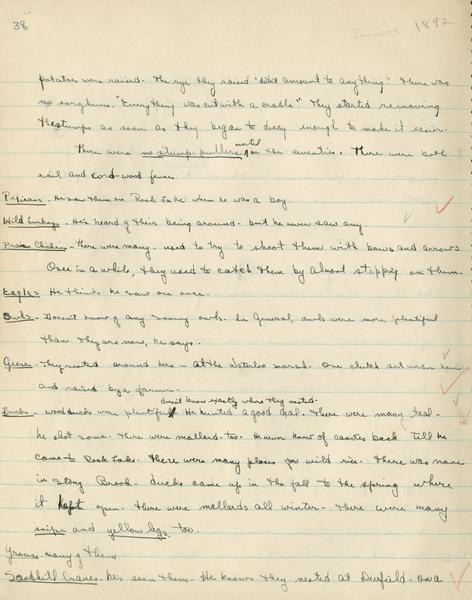 38
Ermine 1892
potatoes were raised. The rye they raised "didn't amount to anything". There was
no sorghum. "Everything was cut with a cradle." They started removing
the stumps as soon as they began to decay enough to make it easier.
There were no stump pullers until in the seventies. There were both
rail and cord-wood fences
Pigeons - He saw them on Rock Lake when he was a boy.
Wild turkeys - He's heard of their being around - but he never saw any.
Prairie Chicken - there were many - used to try to shoot them with bows and arrows
Once in a while, they used to catch them by almost stepping on them.
Eagles - He thinks he saw one once.
Owls - Doesn't know of any snowy owls. In General, owls were more plentiful
than they are now, he says.
Geese - They nested around here - at the Waterloo marsh. One clutch set under hen
and raised by a farmer.
doesn't know exactly where they nested -
Ducks - woodducks were plentiful. He hunted a good deal. There were many teal -
he shot some. There were mallard - too. He never knew of canvas back till he
came to Rock Lake. There were many places for wild rice. There was none
in Stony Brook. Ducks came up in the fall to the spring where
it kept open. There were mallards all winter - there were many
snipe and yellow legs, too.
Grouse - many of them
Sandhill Cranes - he's seen them - He knows they nested at Deerfield - on a